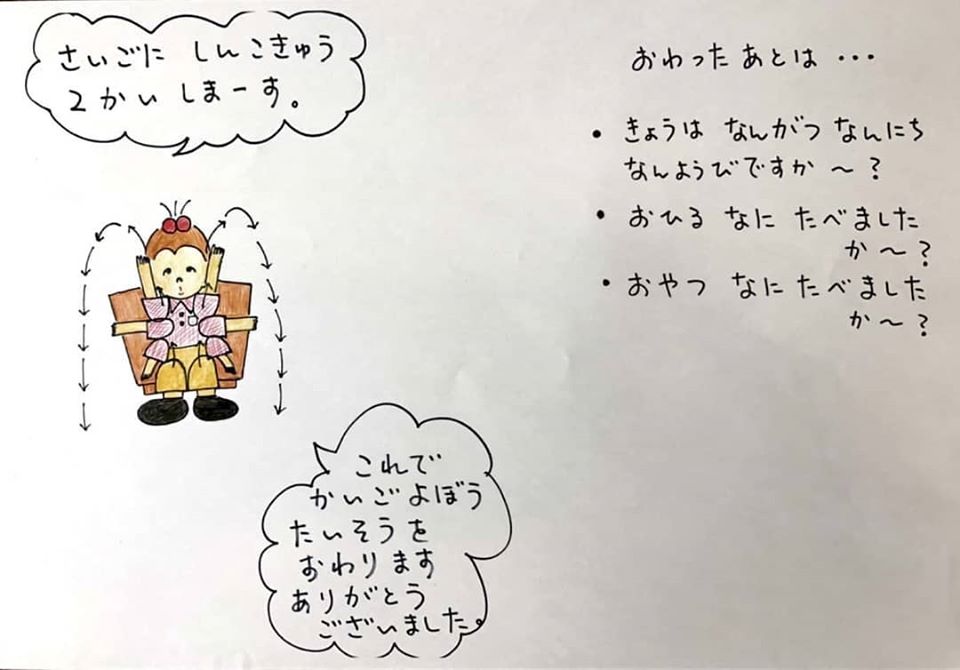 さいごに しんこきゅう
2 かい しまーす。
おわった あとは ・・・
・ きょうは なんがつ なんにち
なんようびですか 〜 ?
・ おひる なに たべました
か 〜 ?
・ おやつ なに たべました
か 〜 ?
これで
かいごよぼう
たいそうを
おわります
ありがとう
ございました。